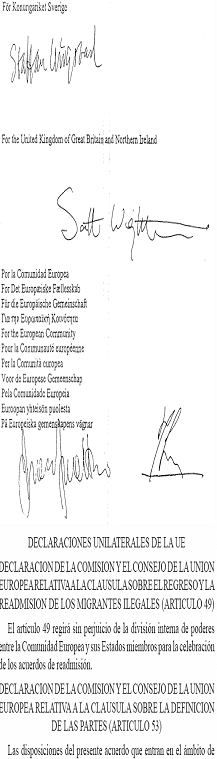 För Konungariket Sverige
For the United Kingdom of Great Britain and Northern Ireland
Por la Comunidad Europea
For Det Europæiske Fællesskab
Für die Europäische Gemeinschaft
Για την Ευρωπαϊκή Κοινότητα
For the European Community
Pour la Communauté européenne
Per la Comunità europea
Voor de Europese Gemeenschap
Pela Comunidade Europeia
Euroopan yhteisön puolesta
På Europeiska gemenskapens vägnar
DECLARACIONES UNILATERALES DE LA UE
DECLARACION DE LA COMISION Y EL CONSEJO DE LA UNION
EUROPEA RELATIVA A LA CLAUSULA SOBRE EL REGRESO Y LA
READMISION DE LOS MIGRANTES ILEGALES (ARTICULO 49)
El artículo 49 regirá sin perjuicio de la división interna de poderes
entre la Comunidad Europea y sus Estados miembros para la celebración
de los acuerdos de readmisión.
DECLARACION DE LA COMISION Y EL CONSEJO DE LA UNION
EUROPEA RELATIVA A LA CLAUSULA SOBRE LA DEFINICION
DE LAS PARTES (ARTICULO 53)
Las disposiciones del presente acuerdo que entran en el ámbito de